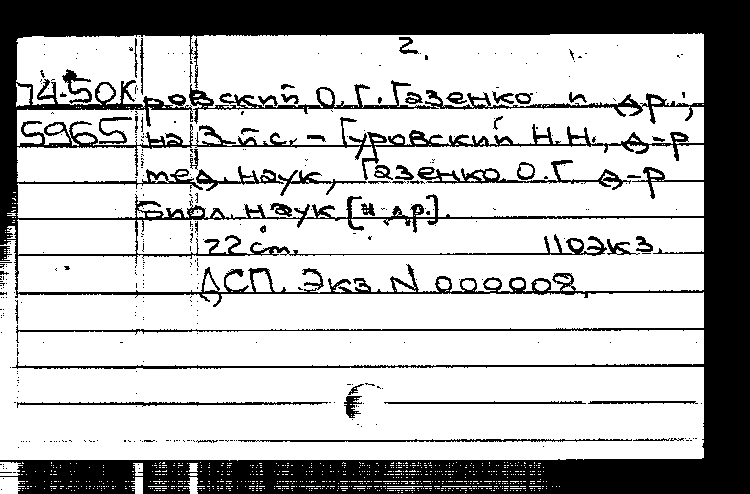 2.
74-50К ровский, О.Г. Газенко и др.;
5965 на 3-й с. – Гуровский Н.Н., д-р
мед. наук, Газенко О.Г. д-р
биол. наук [и др.].
22 cm. 110 экз.
ДСП. Экз. N 000008.